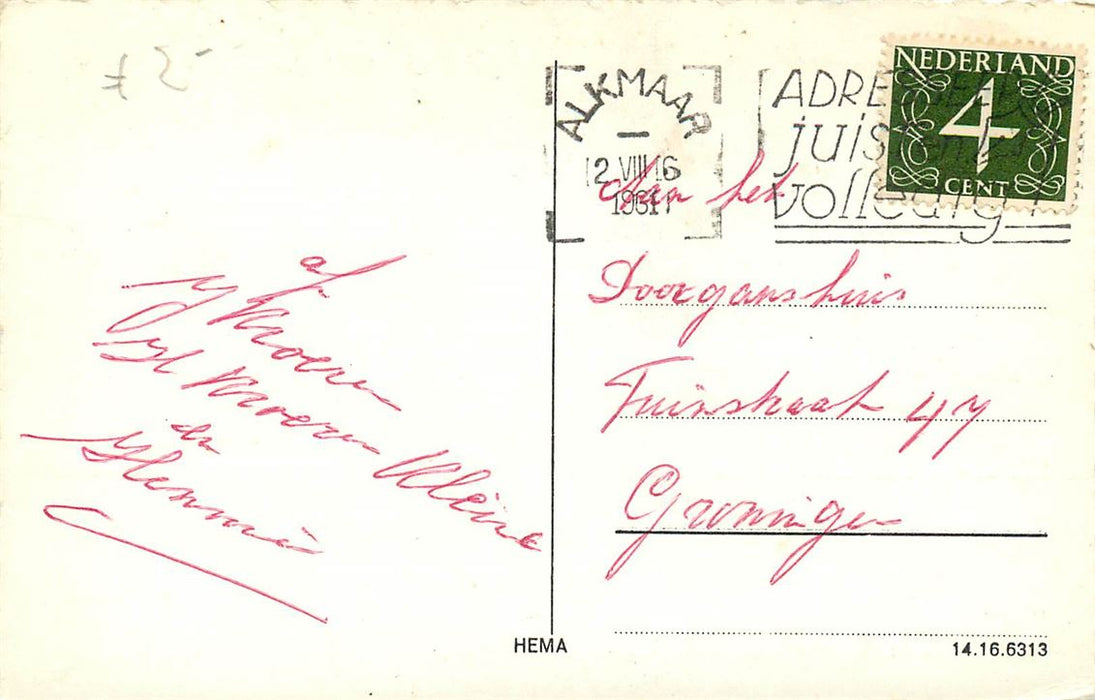 NEDERLAND
4
CENT
ALKMAAR
2 VIII 16
1961
ADRE
juist
volledig
af
Kroeze
Kroeze Kleine
en
Hennie
Aan het
Doorganshuis
Tuinstraat 47
Groningen
HEMA
14.16.6313